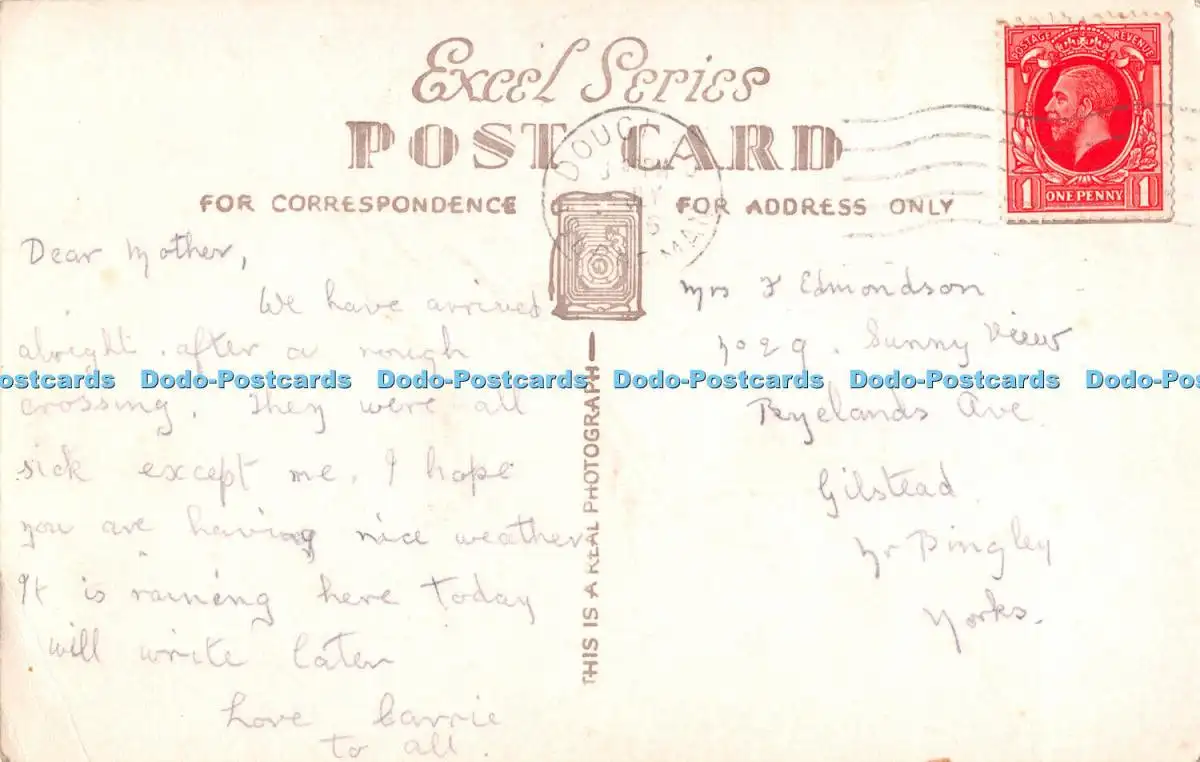 Excel Series
POST CARD
FOR CORRESPONDENCE
FOR ADDRESS ONLY
POSTAGE REVENUE
1 ONE PENNY 1
Dear Mother,
We have arrived
alright. after a rough
crossing. They were all
sick except me. I hope
you are having nice weather
It is raining here today
will write later
Love Carrie
to all.
THIS IS A REAL PHOTOGRAPH
Mrs F Edmondson
Sunny View
Ryelands Ave
Gilstead
Nr Bingley
Yorks.
Dodo-Postcards Dodo-Postcards Dodo-Postcards Dodo-Postcards